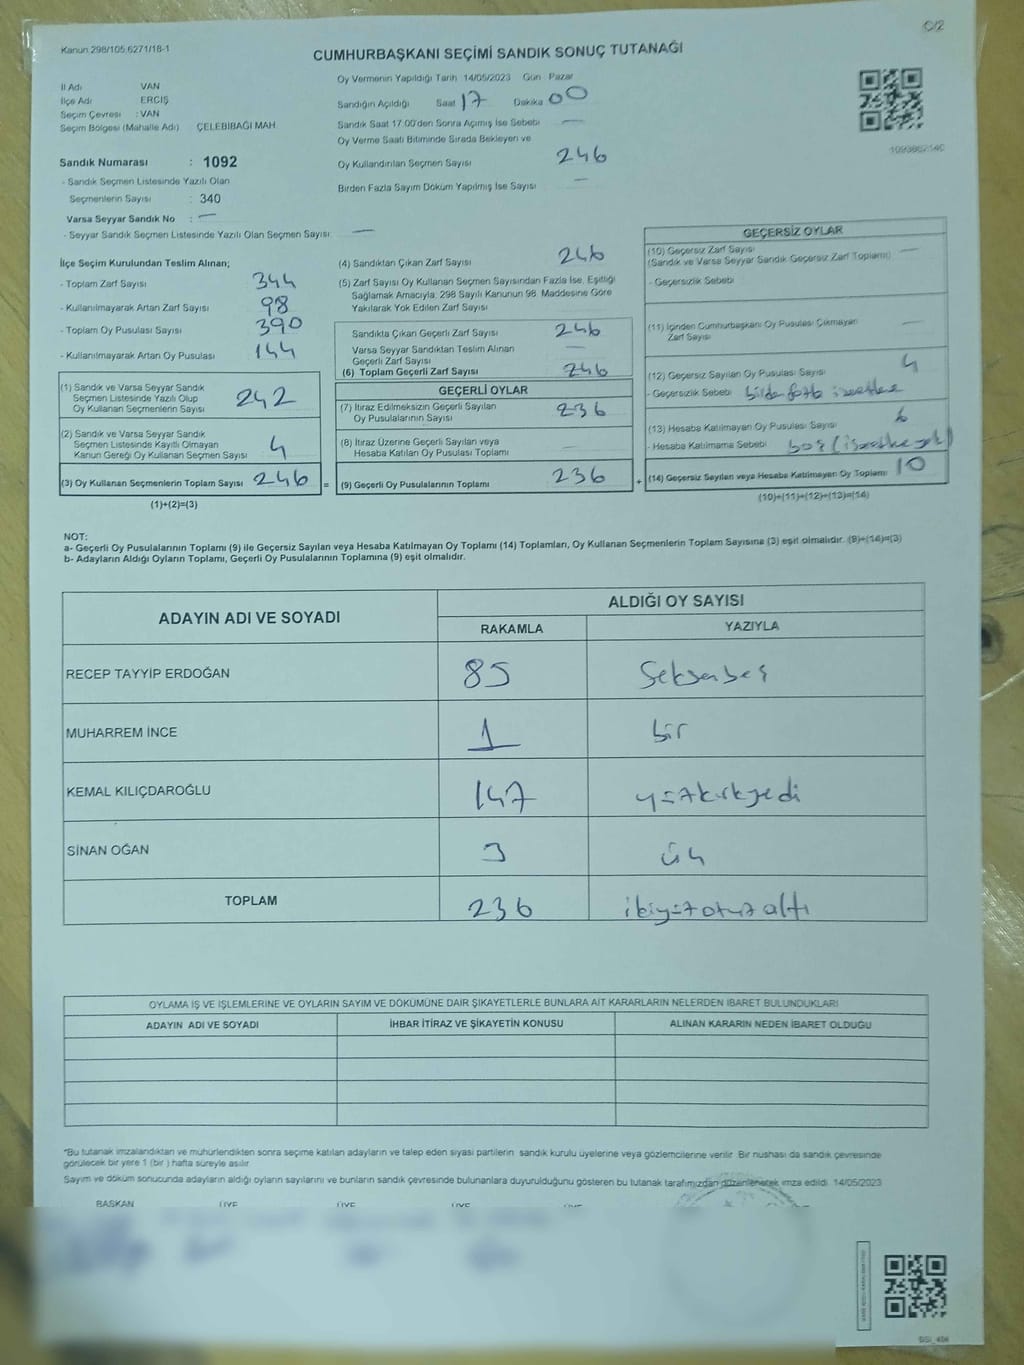 C/2
Kanun 298/105,6271/18-1
CUMHURBAŞKANI SEÇİMİ SANDIK SONUÇ TUTANAĞI
İl Adı VAN
İlçe Adı ERCİŞ
Seçim Çevresi : VAN
Seçim Bölgesi (Mahalle Adı) ÇELEBİBAĞI MAH.
Sandık Numarası : 1092
- Sandık Seçmen Listesinde Yazılı Olan
Seçmenlerin Sayısı : 340
Varsa Seyyar Sandık No : —
- Seyyar Sandık Seçmen Listesinde Yazılı Olan Seçmen Sayısı: —
Oy Vermenin Yapıldığı Tarih 14/05/2023 Gün Pazar
Sandığın Açıldığı Saat 17 Dakika 00
Sandık Saat 17.00'den Sonra Açılmış İse Sebebi —
Oy Verme Saati Bitiminde Sırada Bekleyen ve
Oy Kullandırılan Seçmen Sayısı 246
Birden Fazla Sayım Döküm Yapılmış İse Sayısı —
1093882140
İlçe Seçim Kurulundan Teslim Alınan;
- Toplam Zarf Sayısı 344
- Kullanılmayarak Artan Zarf Sayısı 98
- Toplam Oy Pusulası Sayısı 390
- Kullanılmayarak Artan Oy Pusulası 144
(1) Sandık ve Varsa Seyyar Sandık
Seçmen Listesinde Yazılı Olup
Oy Kullanan Seçmenlerin Sayısı 242
(2) Sandık ve Varsa Seyyar Sandık
Seçmen Listesinde Kayıtlı Olmayan
Kanun Gereği Oy Kullanan Seçmen Sayısı 4
(3) Oy Kullanan Seçmenlerin Toplam Sayısı 246 =
(1)+(2)=(3)
(4) Sandıktan Çıkan Zarf Sayısı 246
(5) Zarf Sayısı Oy Kullanan Seçmen Sayısından Fazla İse, Eşitliği
Sağlamak Amacıyla, 298 Sayılı Kanunun 98. Maddesine Göre
Yakılarak Yok Edilen Zarf Sayısı
Sandıkta Çıkan Geçerli Zarf Sayısı 246
Varsa Seyyar Sandıktan Teslim Alınan
Geçerli Zarf Sayısı —
(6) Toplam Geçerli Zarf Sayısı 246
GEÇERLİ OYLAR
(7) İtiraz Edilmeksizin Geçerli Sayılan
Oy Pusulalarının Sayısı 236
(8) İtiraz Üzerine Geçerli Sayılan veya
Hesaba Katılan Oy Pusulası Toplamı
(9) Geçerli Oy Pusulalarının Toplamı 236 +
GEÇERSİZ OYLAR
(10) Geçersiz Zarf Sayısı —
(Sandık ve Varsa Seyyar Sandık Geçersiz Zarf Toplamı)
- Geçersizlik Sebebi
(11) İçinden Cumhurbaşkanı Oy Pusulası Çıkmayan —
Zarf Sayısı
(12) Geçersiz Sayılan Oy Pusulası Sayısı 4
- Geçersizlik Sebebi birden fazla
(13) Hesaba Katılmayan Oy Pusulası Sayısı 6
- Hesaba Katılmama Sebebi boş
(14) Geçersiz Sayılan veya Hesaba Katılmayan Oy Toplamı 10
(10)+(11)+(12)+(13)=(14)
NOT:
a- Geçerli Oy Pusulalarının Toplamı (9) ile Geçersiz Sayılan veya Hesaba Katılmayan Oy Toplamı (14) Toplamları, Oy Kullanan Seçmenlerin Toplam Sayısına (3) eşit olmalıdır. (9)+(14)=(3)
b- Adayların Aldığı Oyların Toplamı, Geçerli Oy Pusulalarının Toplamına (9) eşit olmalıdır.
ADAYIN ADI VE SOYADI ALDIĞI OY SAYISI
RAKAMLA YAZIYLA
RECEP TAYYİP ERDOĞAN 85 Seksenbeş
MUHARREM İNCE 1 bir
KEMAL KILIÇDAROĞLU 147 yüzkırkyedi
SİNAN OĞAN 3 üç
TOPLAM 236 ikiyüzotuzaltı
OYLAMA İŞ VE İŞLEMLERİNE VE OYLARIN SAYIM VE DÖKÜMÜNE DAİR ŞİKAYETLERLE BUNLARA AİT KARARLARIN NELERDEN İBARET BULUNDUKLARI
ADAYIN ADI VE SOYADI İHBAR İTİRAZ VE ŞİKAYETİN KONUSU ALINAN KARARIN NEDEN İBARET OLDUĞU
*Bu tutanak imzalandıktan ve mühürlendikten sonra seçime katılan adayların ve talep eden siyasi partilerin sandık kurulu üyelerine veya gözlemcilerine verilir. Bir nushası da sandık çevresinde
görülecek bir yere 1 (bir ) hafta süreyle asılır.
Sayım ve döküm sonucunda adayların aldığı oyların sayılarını ve bunların sandık çevresinde bulunanlara duyurulduğunu gösteren bu tutanak tarafımızdan düzenlenerek imza edildi. 14/05/2023
BAŞKAN ÜYE ÜYE ÜYE ÜYE